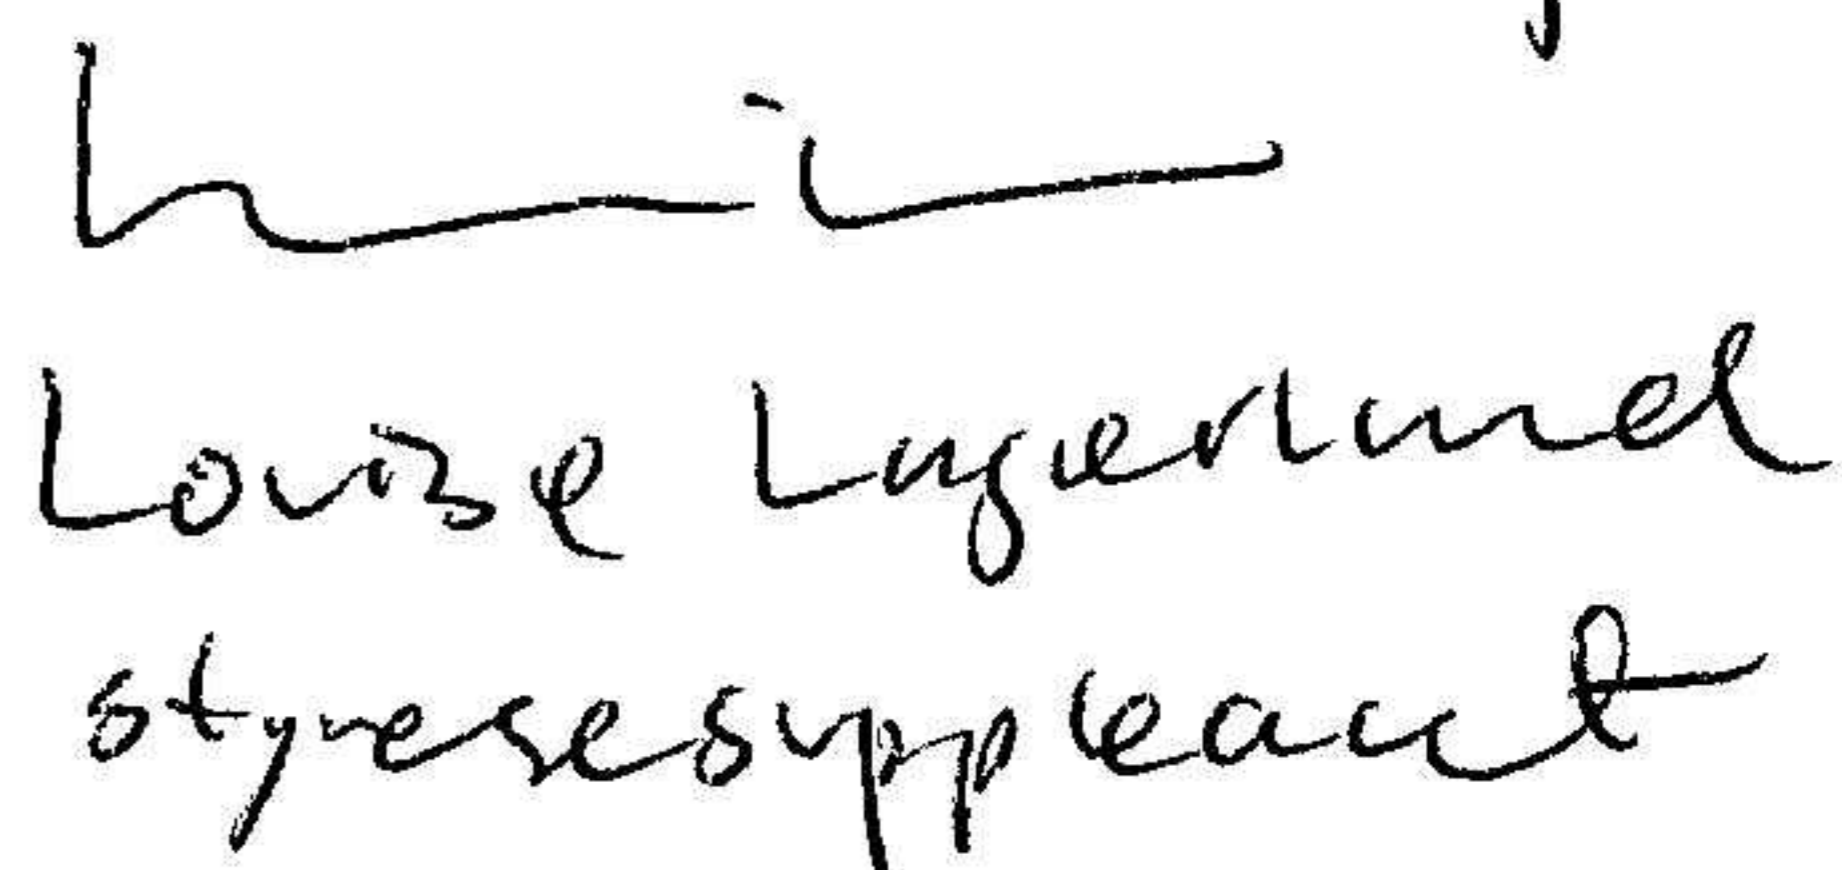 Louise Lagerlund
styresesuppleant